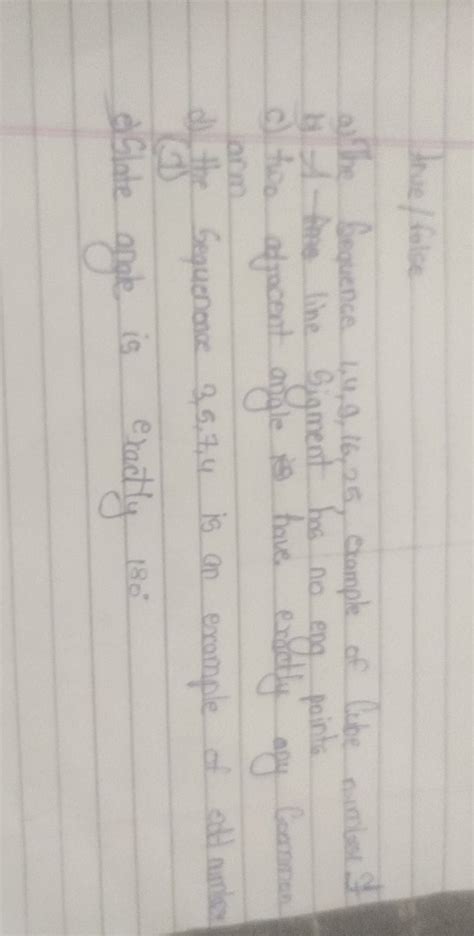 true/false
a) The Sequence 1,4,9,16,25, example of Cube number. F
b) A line Sigment has no eng points
c) two adjacent angle have exactly any Common
arm
d) the Sequenace 3,5,7,4 is an example of odd number
(T)
e) State angle is exactly 180°